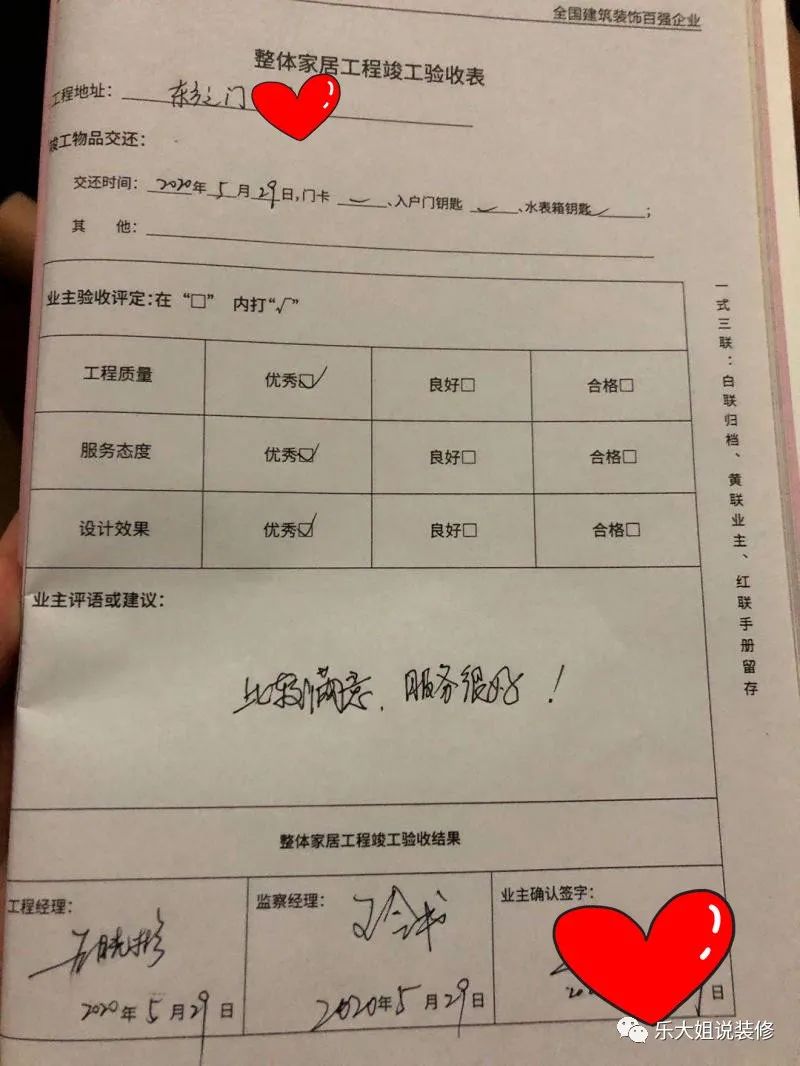 全国建筑装饰百强企业
整体家居工程竣工验收表
工程地址：东方之门
竣工物品交还：
交还时间：2020年5月29日，门卡✓、入户门钥匙✓、水表箱钥匙✓；
其 他：
业主验收评定：在“□”内打“√”
工程质量 优秀☑ 良好□ 合格□
服务态度 优秀☑ 良好□ 合格□
设计效果 优秀☑ 良好□ 合格□
业主评语或建议：
比较满意，服务很好！
整体家居工程竣工验收结果
工程经理： 监察经理： 业主确认签字：
2020年5月29日 2020年5月29日 日
一式三联：白联归档、黄联业主、红联手册留存
乐大姐说装修